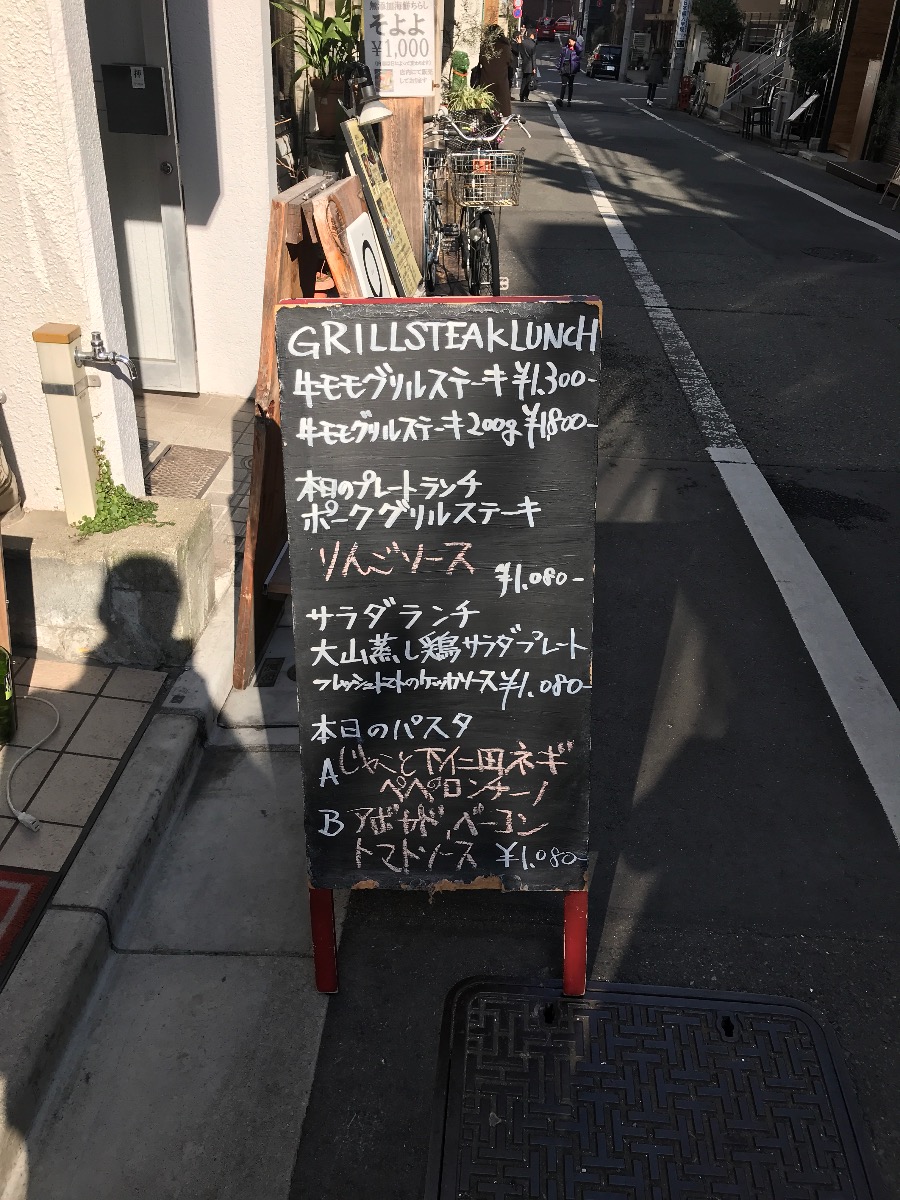 無添加海鮮ちらし
そよよ
¥1,000
店内にて販売
しております
GRILLSTEAKLUNCH
牛モモグリルステーキ ¥1.300-
牛モモグリルステーキ 200g ¥1,800-
本日のプレートランチ
ポークグリルステーキ
りんごソース
¥1.080-
サラダランチ
大山蒸し鶏サラダプレート
フレッシュトマトのケッカソース ¥1.080-
本日のパスタ
A じゃこと下仁田ネギ
ペペロンチーノ
B アボカド、ベーコン
トマトソース ¥1.080-